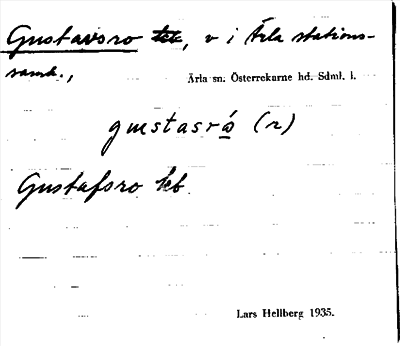 Gustavsro tkb, v i Ärla stations-
samh.,
Ärla sn. Österrekarne hd. Sdml. l.
gustasrò (r)
Gustafsro kb
Lars Hellberg 1935.